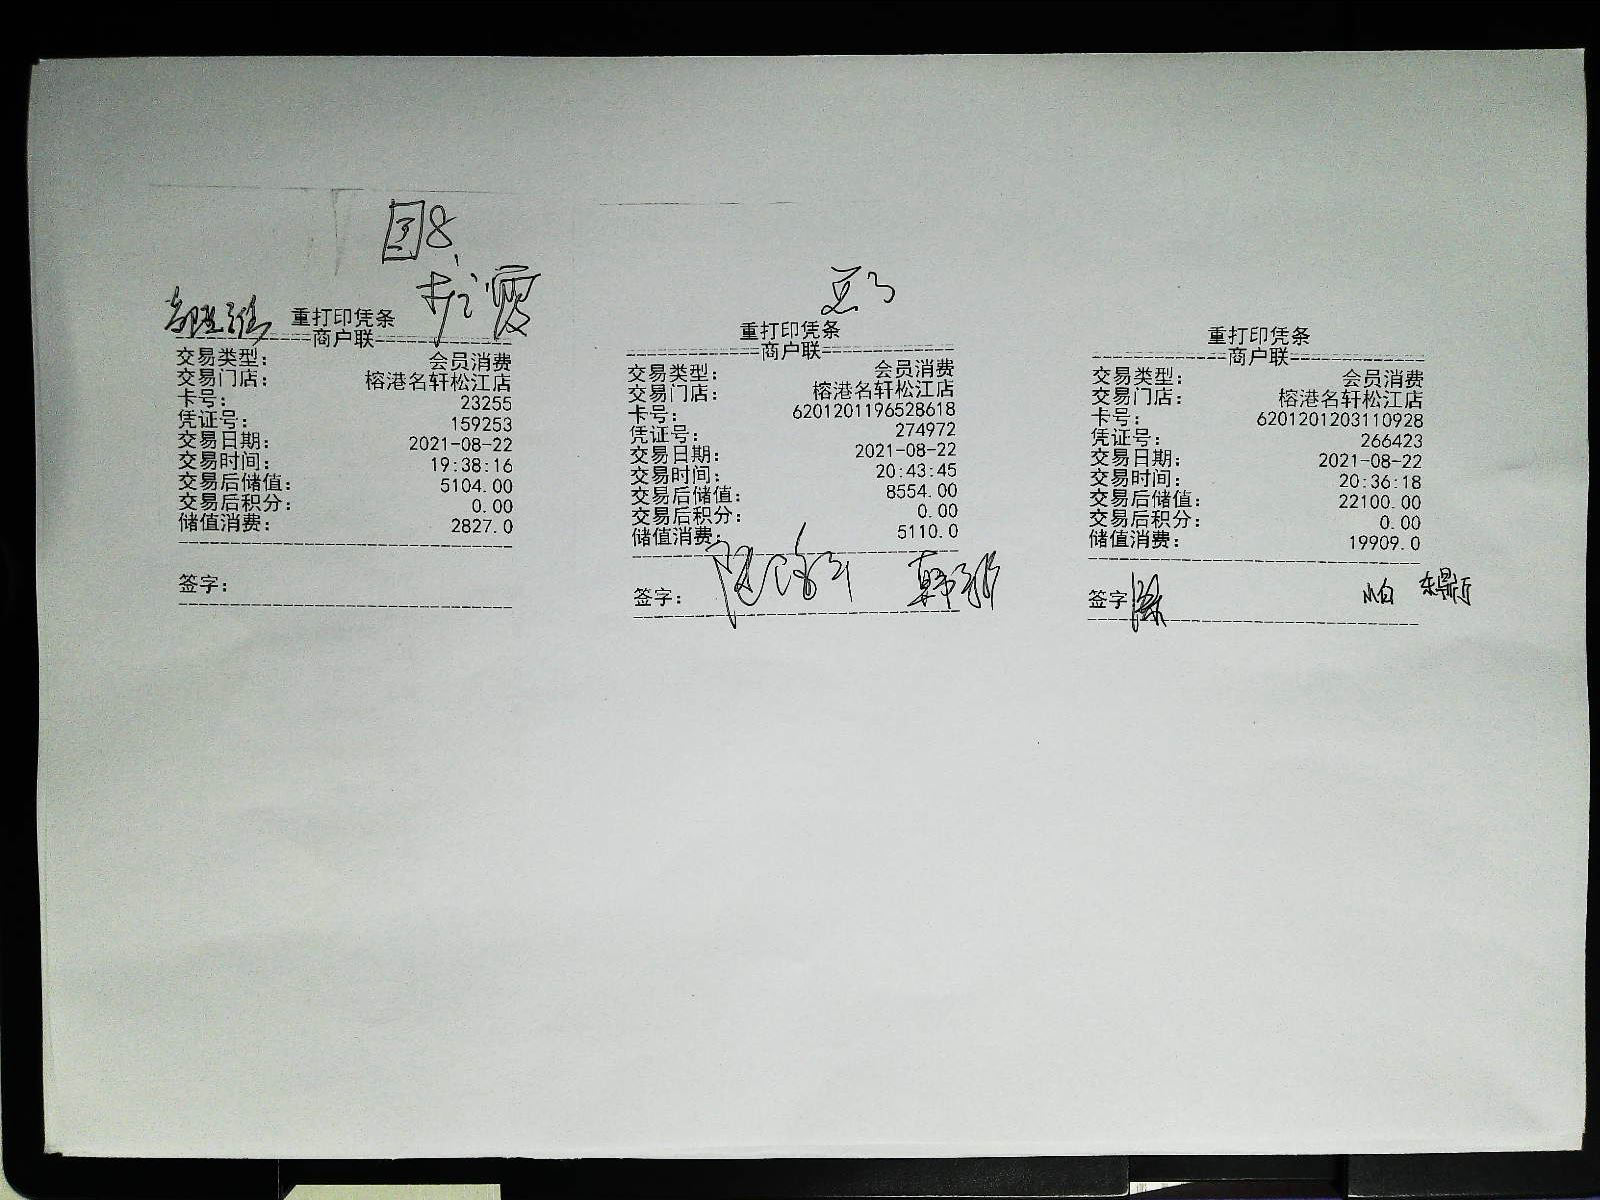 国8
重打印凭条
商户联
交易类型: 会员消费
交易门店: 榕港名轩松江店
卡号: 23255
凭证号: 159253
交易日期: 2021-08-22
交易时间: 19:38:16
交易后储值: 5104.00
交易后积分: 0.00
储值消费: 2827.0
签字:
重打印凭条
商户联
交易类型: 会员消费
交易门店: 榕港名轩松江店
卡号: 6201201196528618
凭证号: 274972
交易日期: 2021-08-22
交易时间: 20:43:45
交易后储值: 8554.00
交易后积分: 0.00
储值消费: 5110.0
签字:
重打印凭条
商户联
交易类型: 会员消费
交易门店: 榕港名轩松江店
卡号: 6201201203110928
凭证号: 266423
交易日期: 2021-08-22
交易时间: 20:36:18
交易后储值: 22100.00
交易后积分: 0.00
储值消费: 19909.0
签字